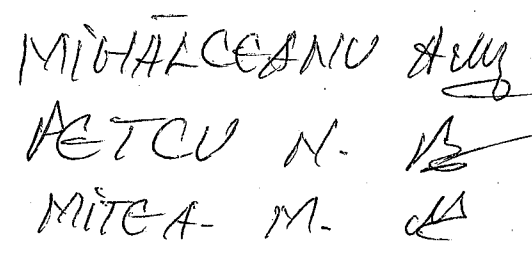 MIHĂLCEANU
PETCU N.
MITEA M.